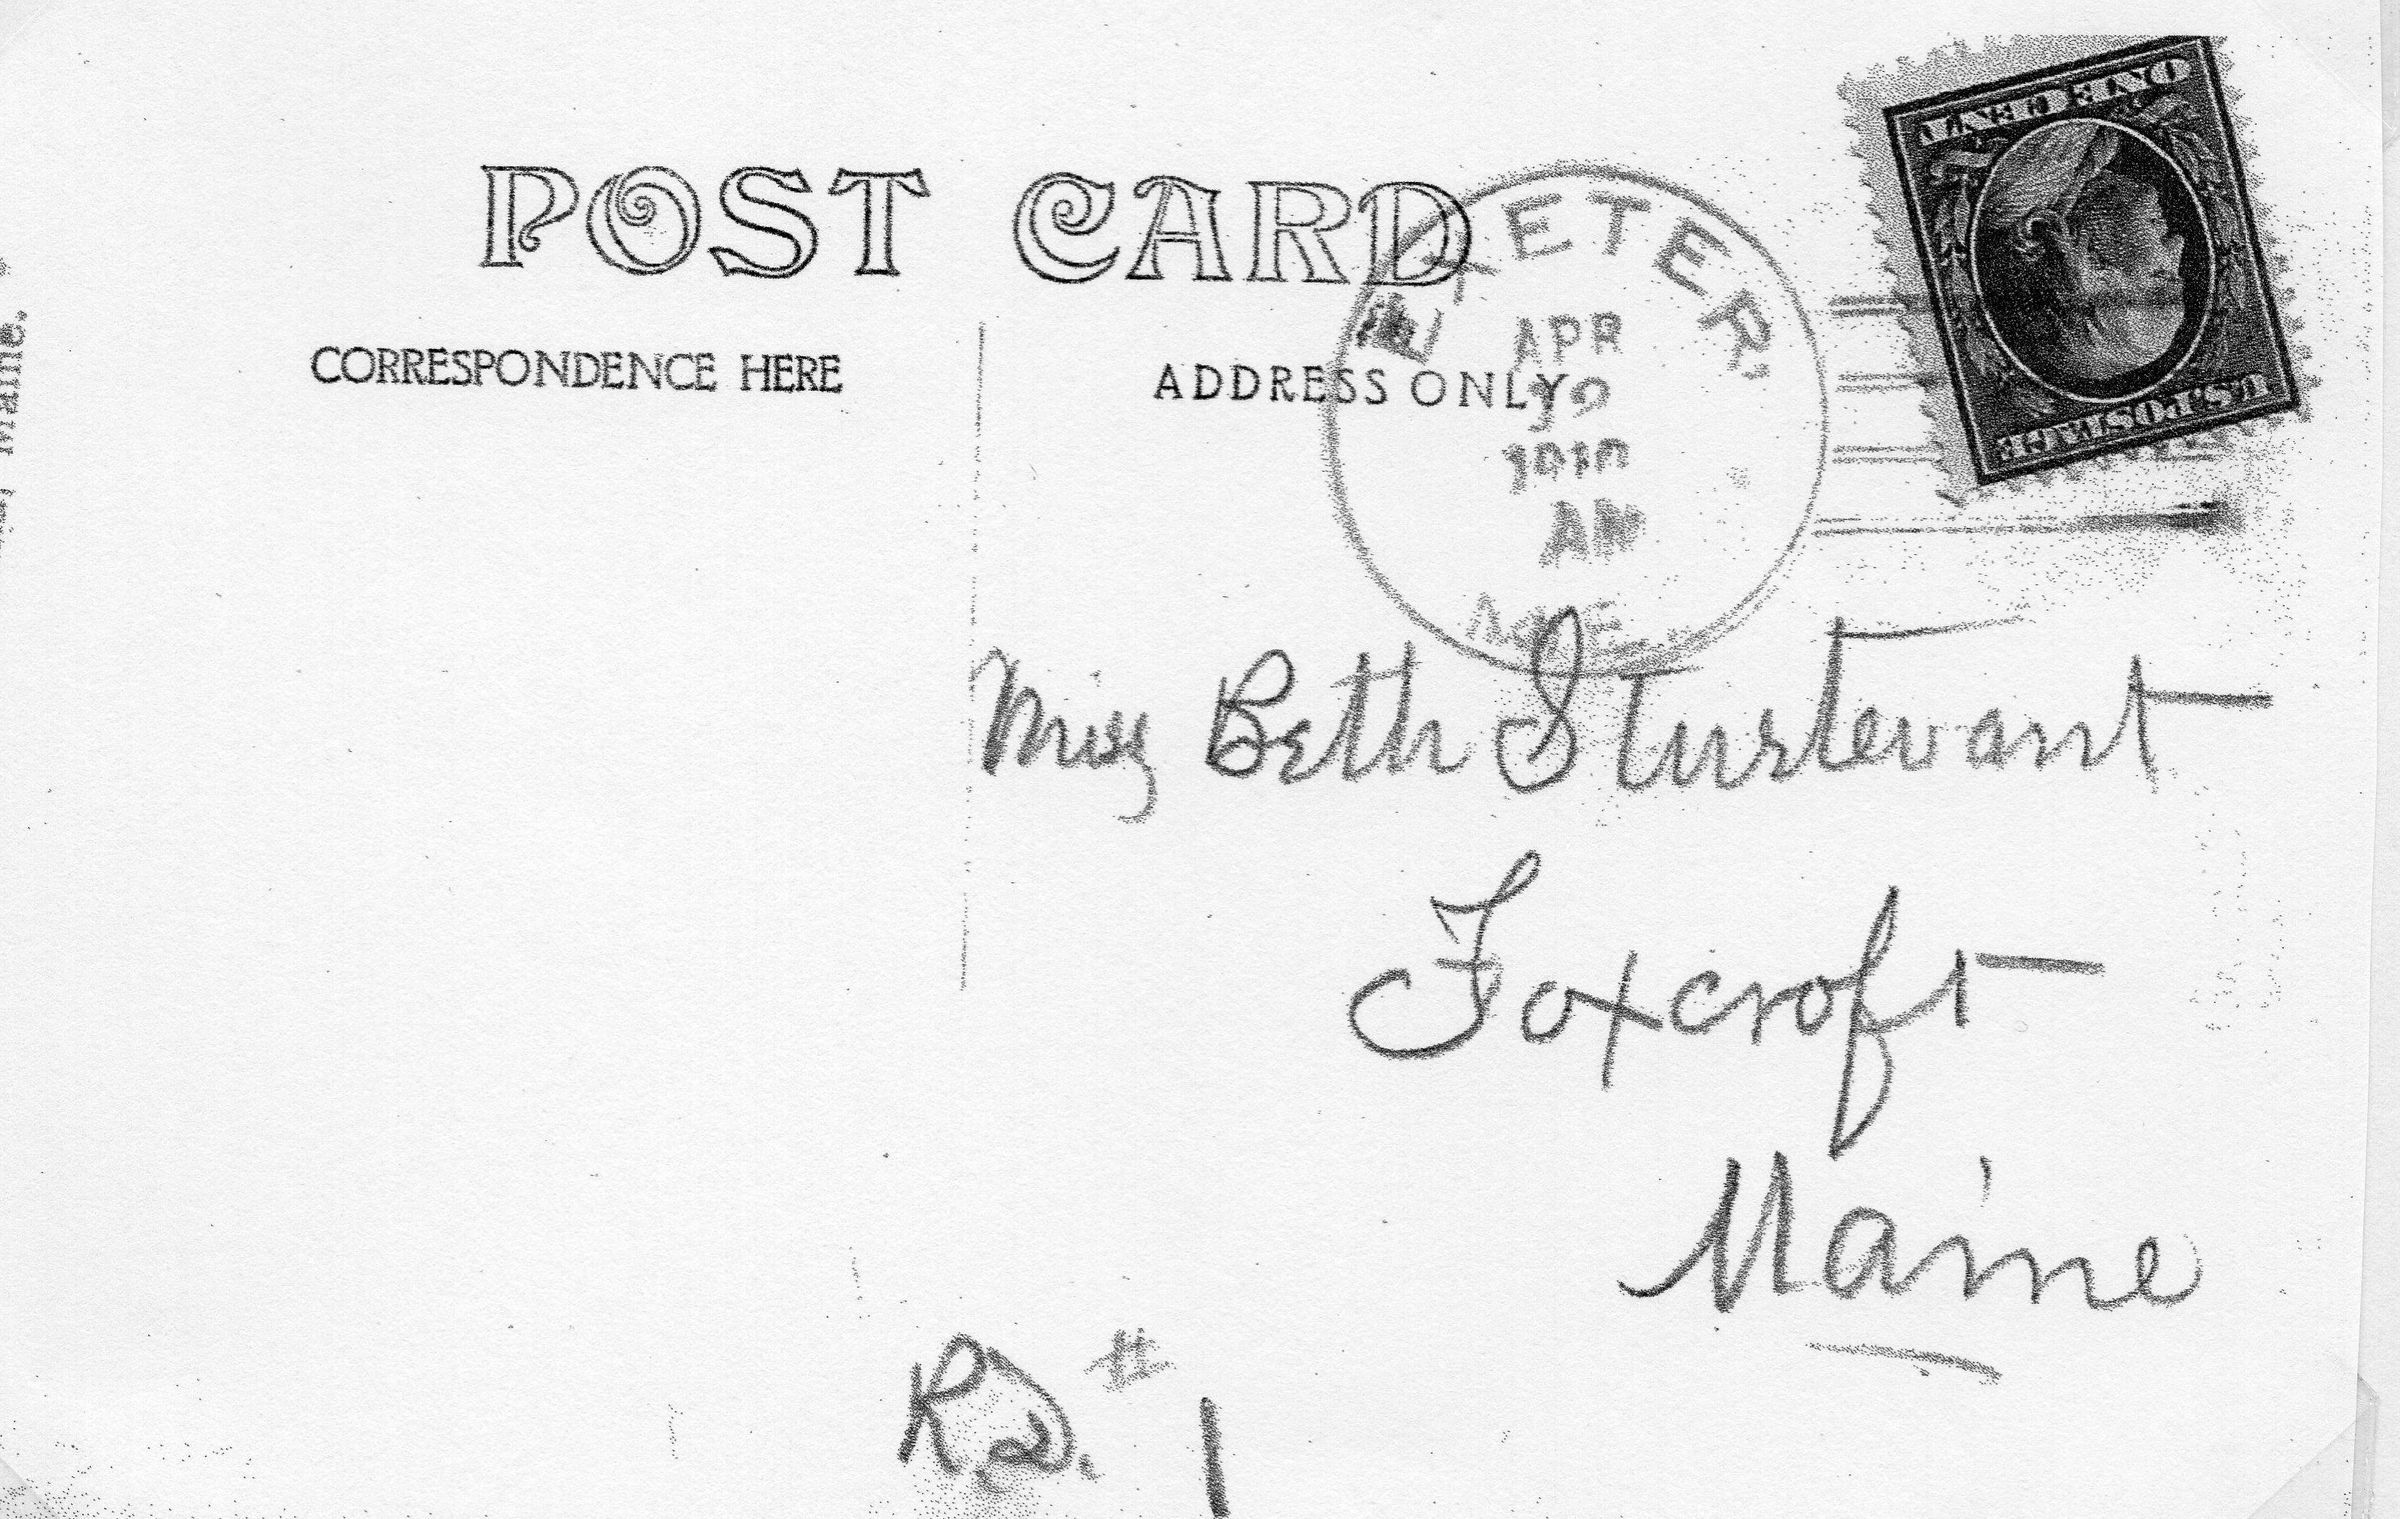 POST CARD
CORRESPONDENCE HERE
ADDRESS ONLY
EXETER
APR
1910
AM
ME.
ONE CENT
U.S. POSTAGE
Maine.
Miss Beth Sturtevant
Foxcroft
Maine
R.D. # 1